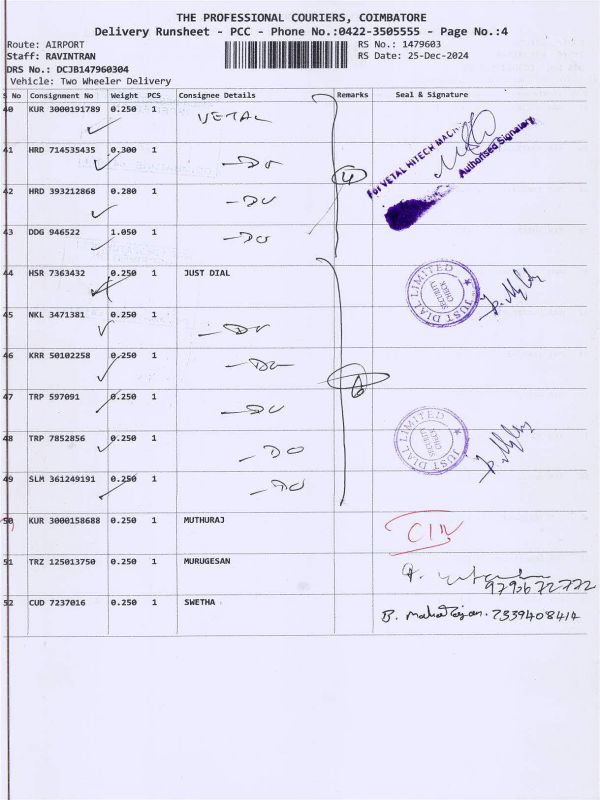 THE PROFESSIONAL COURIERS, COIMBATORE
Delivery Runsheet - PCC - Phone No.:0422-3505555 - Page No.:4
Route: AIRPORT RS No.: 1479603
Staff: RAVINTRAN RS Date: 25-Dec-2024
DRS No.: DCJB147960304
Vehicle: Two Wheeler Delivery
S No Consignment No Weight PCS Consignee Details Remarks Seal & Signature
40 KUR 3000191789 0.250 1 VETAL
41 HRD 714535435 0.300 1 -DO
42 HRD 393212868 0.280 1 -DO
4
For VETAL HITECH MACH
Authorised Signatory
43 DDG 946522 1.050 1 -DO
44 HSR 7363432 0.250 1 JUST DIAL
JUST DIAL LIMITED
SECURITY CHECK
45 NKL 3471381 0.250 1 -DO
46 KRR 50102258 0.250 1 -DO
6
47 TRP 597091 0.250 1 -DO
48 TRP 7852856 0.250 1 -DO
JUST DIAL LIMITED
SECURITY CHECK
49 SLM 361249191 0.250 1 -DO
50 KUR 3000158688 0.250 1 MUTHURAJ
51 TRZ 125013750 0.250 1 MURUGESAN
52 CUD 7237016 0.250 1 SWETHA B. 7339408414